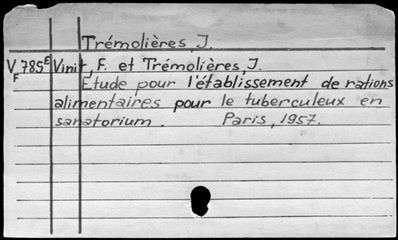 Trémolières, J.
V 785 E Vinit, F. et Trémolières, J.
F Étude pour l'établissement de rations
alimentaires pour le tuberculeux en
sanatorium Paris, 1957.